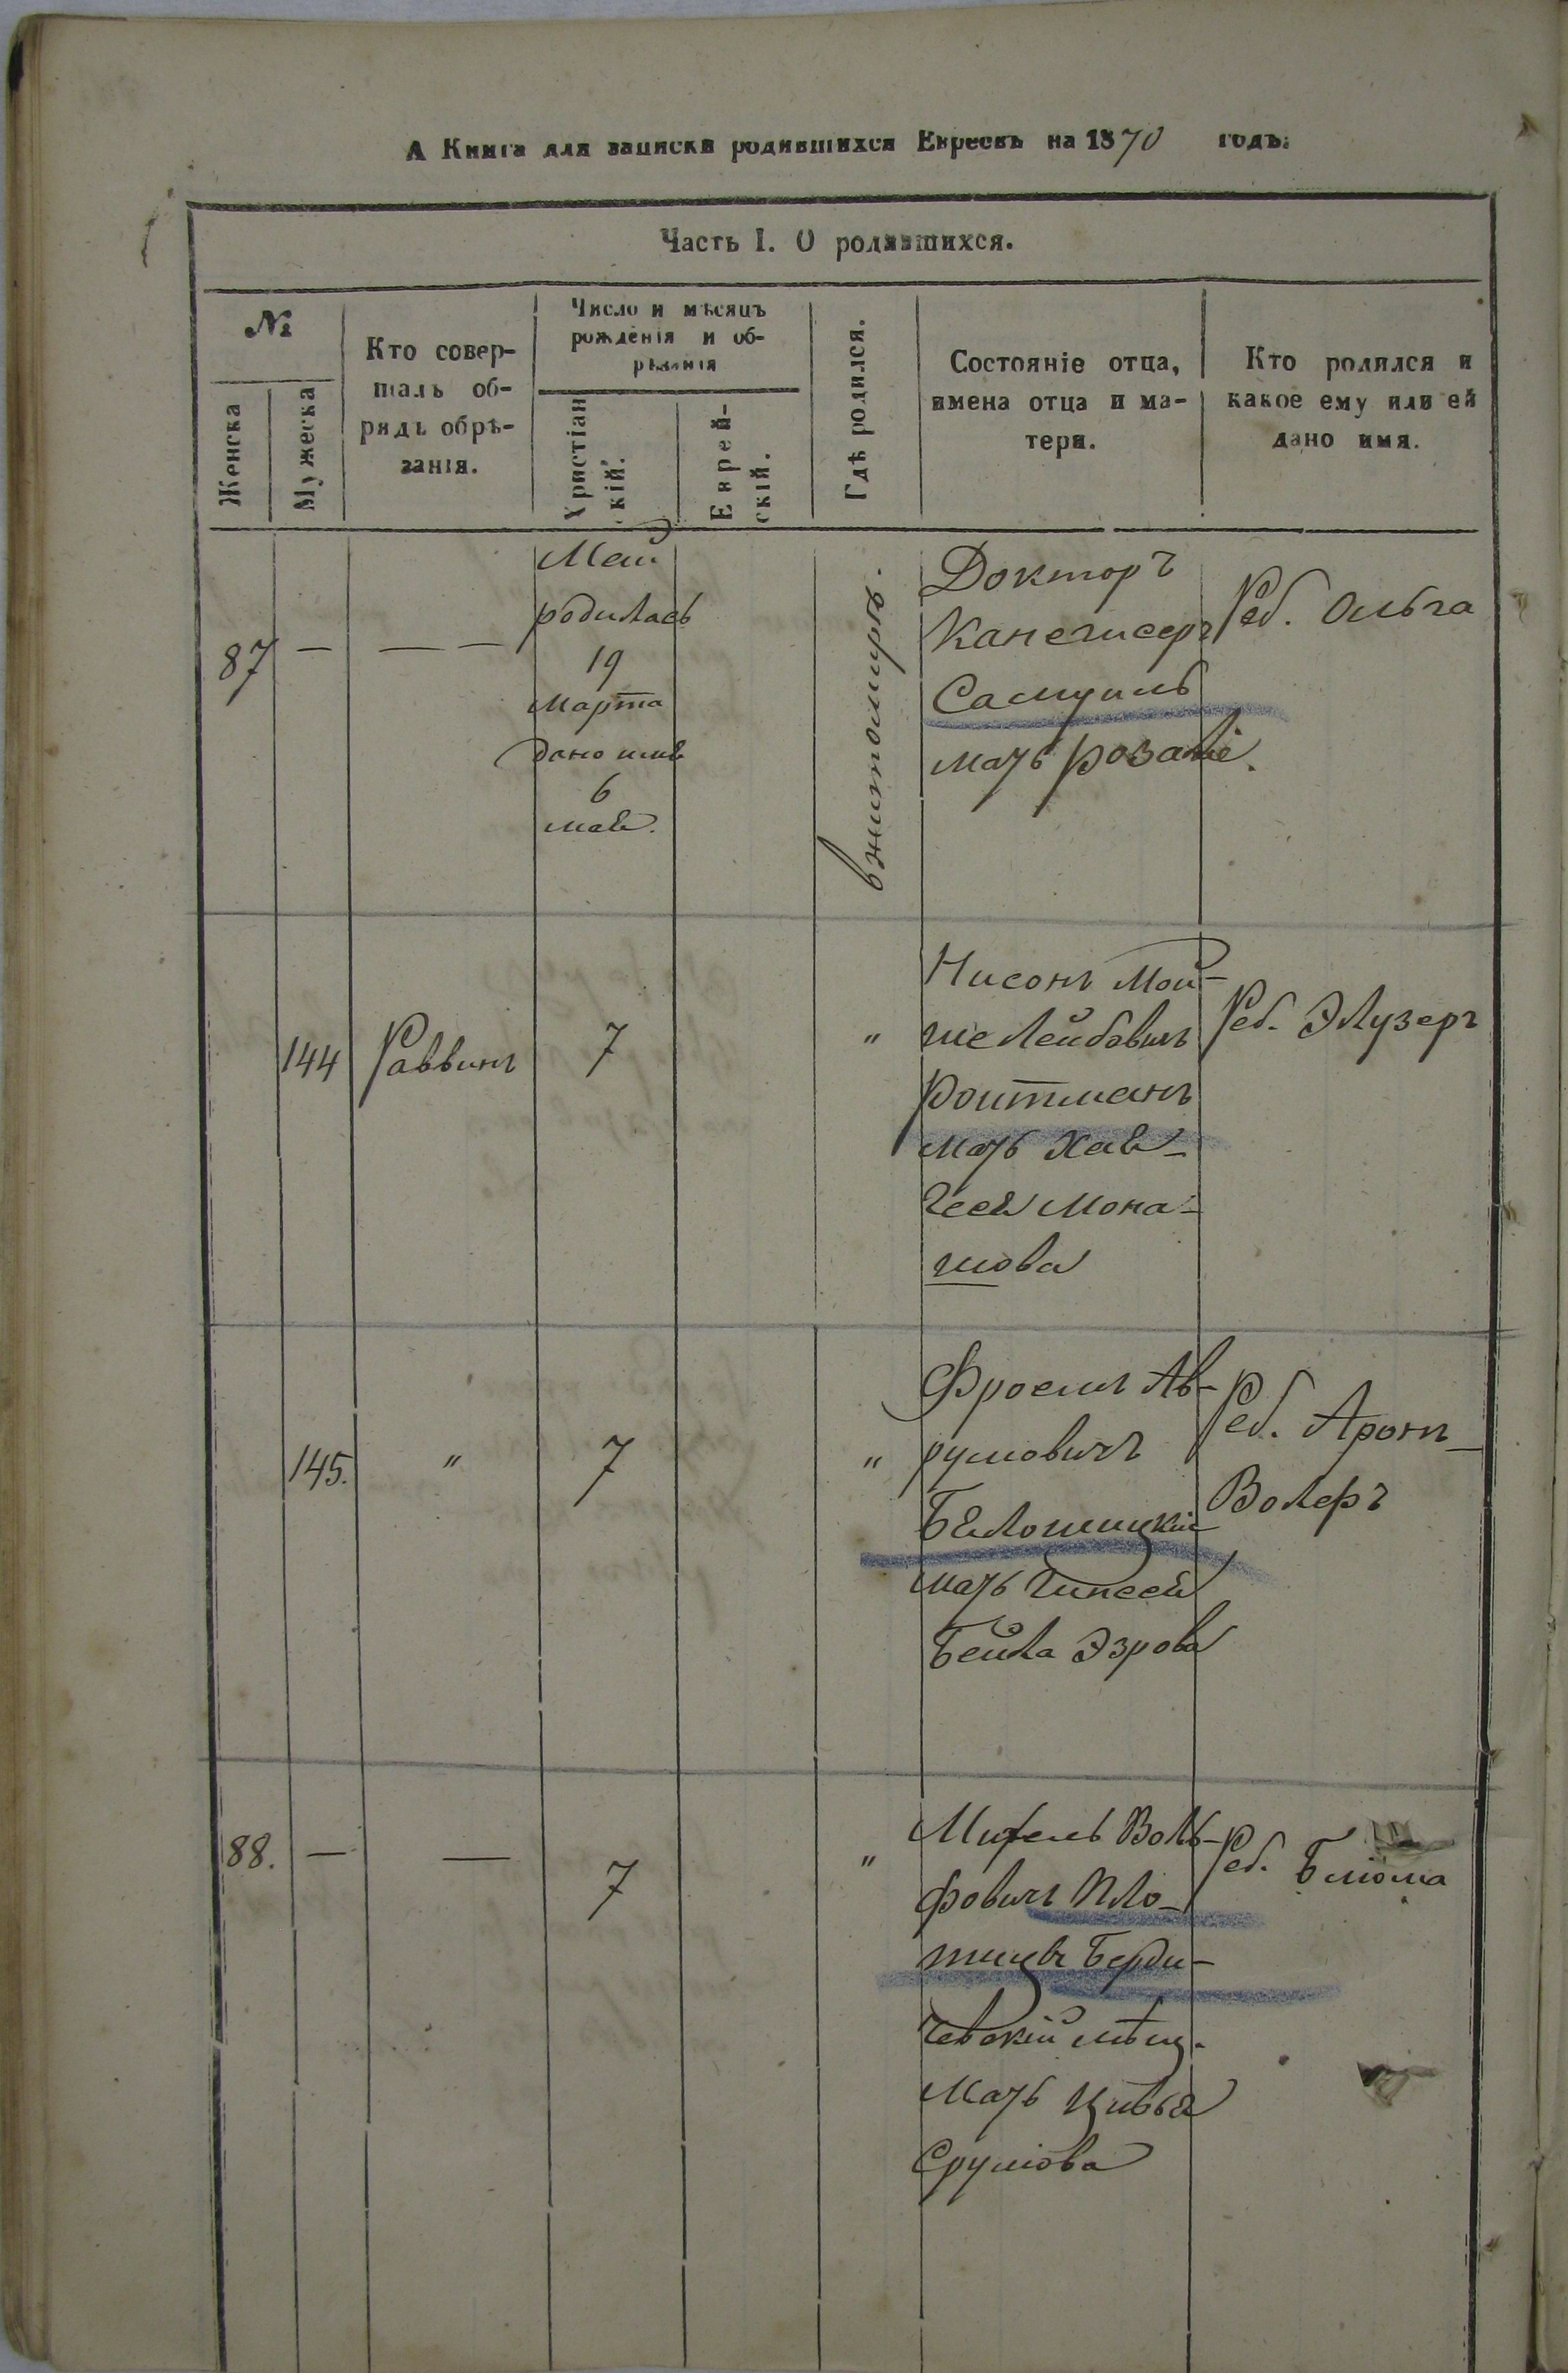 А Книга для записки родившихся Евреевъ на 1870 годъ.
Часть I. О родившихся.
№
Женска
Мужеска
Кто совер-
шалъ об-
рядъ обрѣ-
занія.
Число и мѣсяцъ
рожденія и об-
рѣзанія
Христіан
скій.
Еврей-
скій.
Гдѣ родился.
Состояніе отца,
имена отца и ма-
тери.
Кто родился и
какое ему или ей
дано имя.
87 — — —
Май
родилась
19
Марта
дано имя
6
мая.
в житомирѣ.
Докторъ
Канегисеръ
Самуилъ
мать Розалія.
Реб. Ольга
144 Раввинъ 7 "
Нисонъ Мой-
ше Лейбовичъ
Ройтманъ
мать Хая-
Геся Мона-
шова
Реб. Элузеръ
145. " 7 "
Фроемъ Ав-
румовичъ
Бялошицкій
мать Гинеся
Бейла Эзрова
Реб. Аронъ-
Волфъ
88. — — 7 "
Михель Воль-
фовичъ Пло-
тицъ Берди-
чевскій мѣщ.
Мать Цивья
Срулова
Реб. Блюма